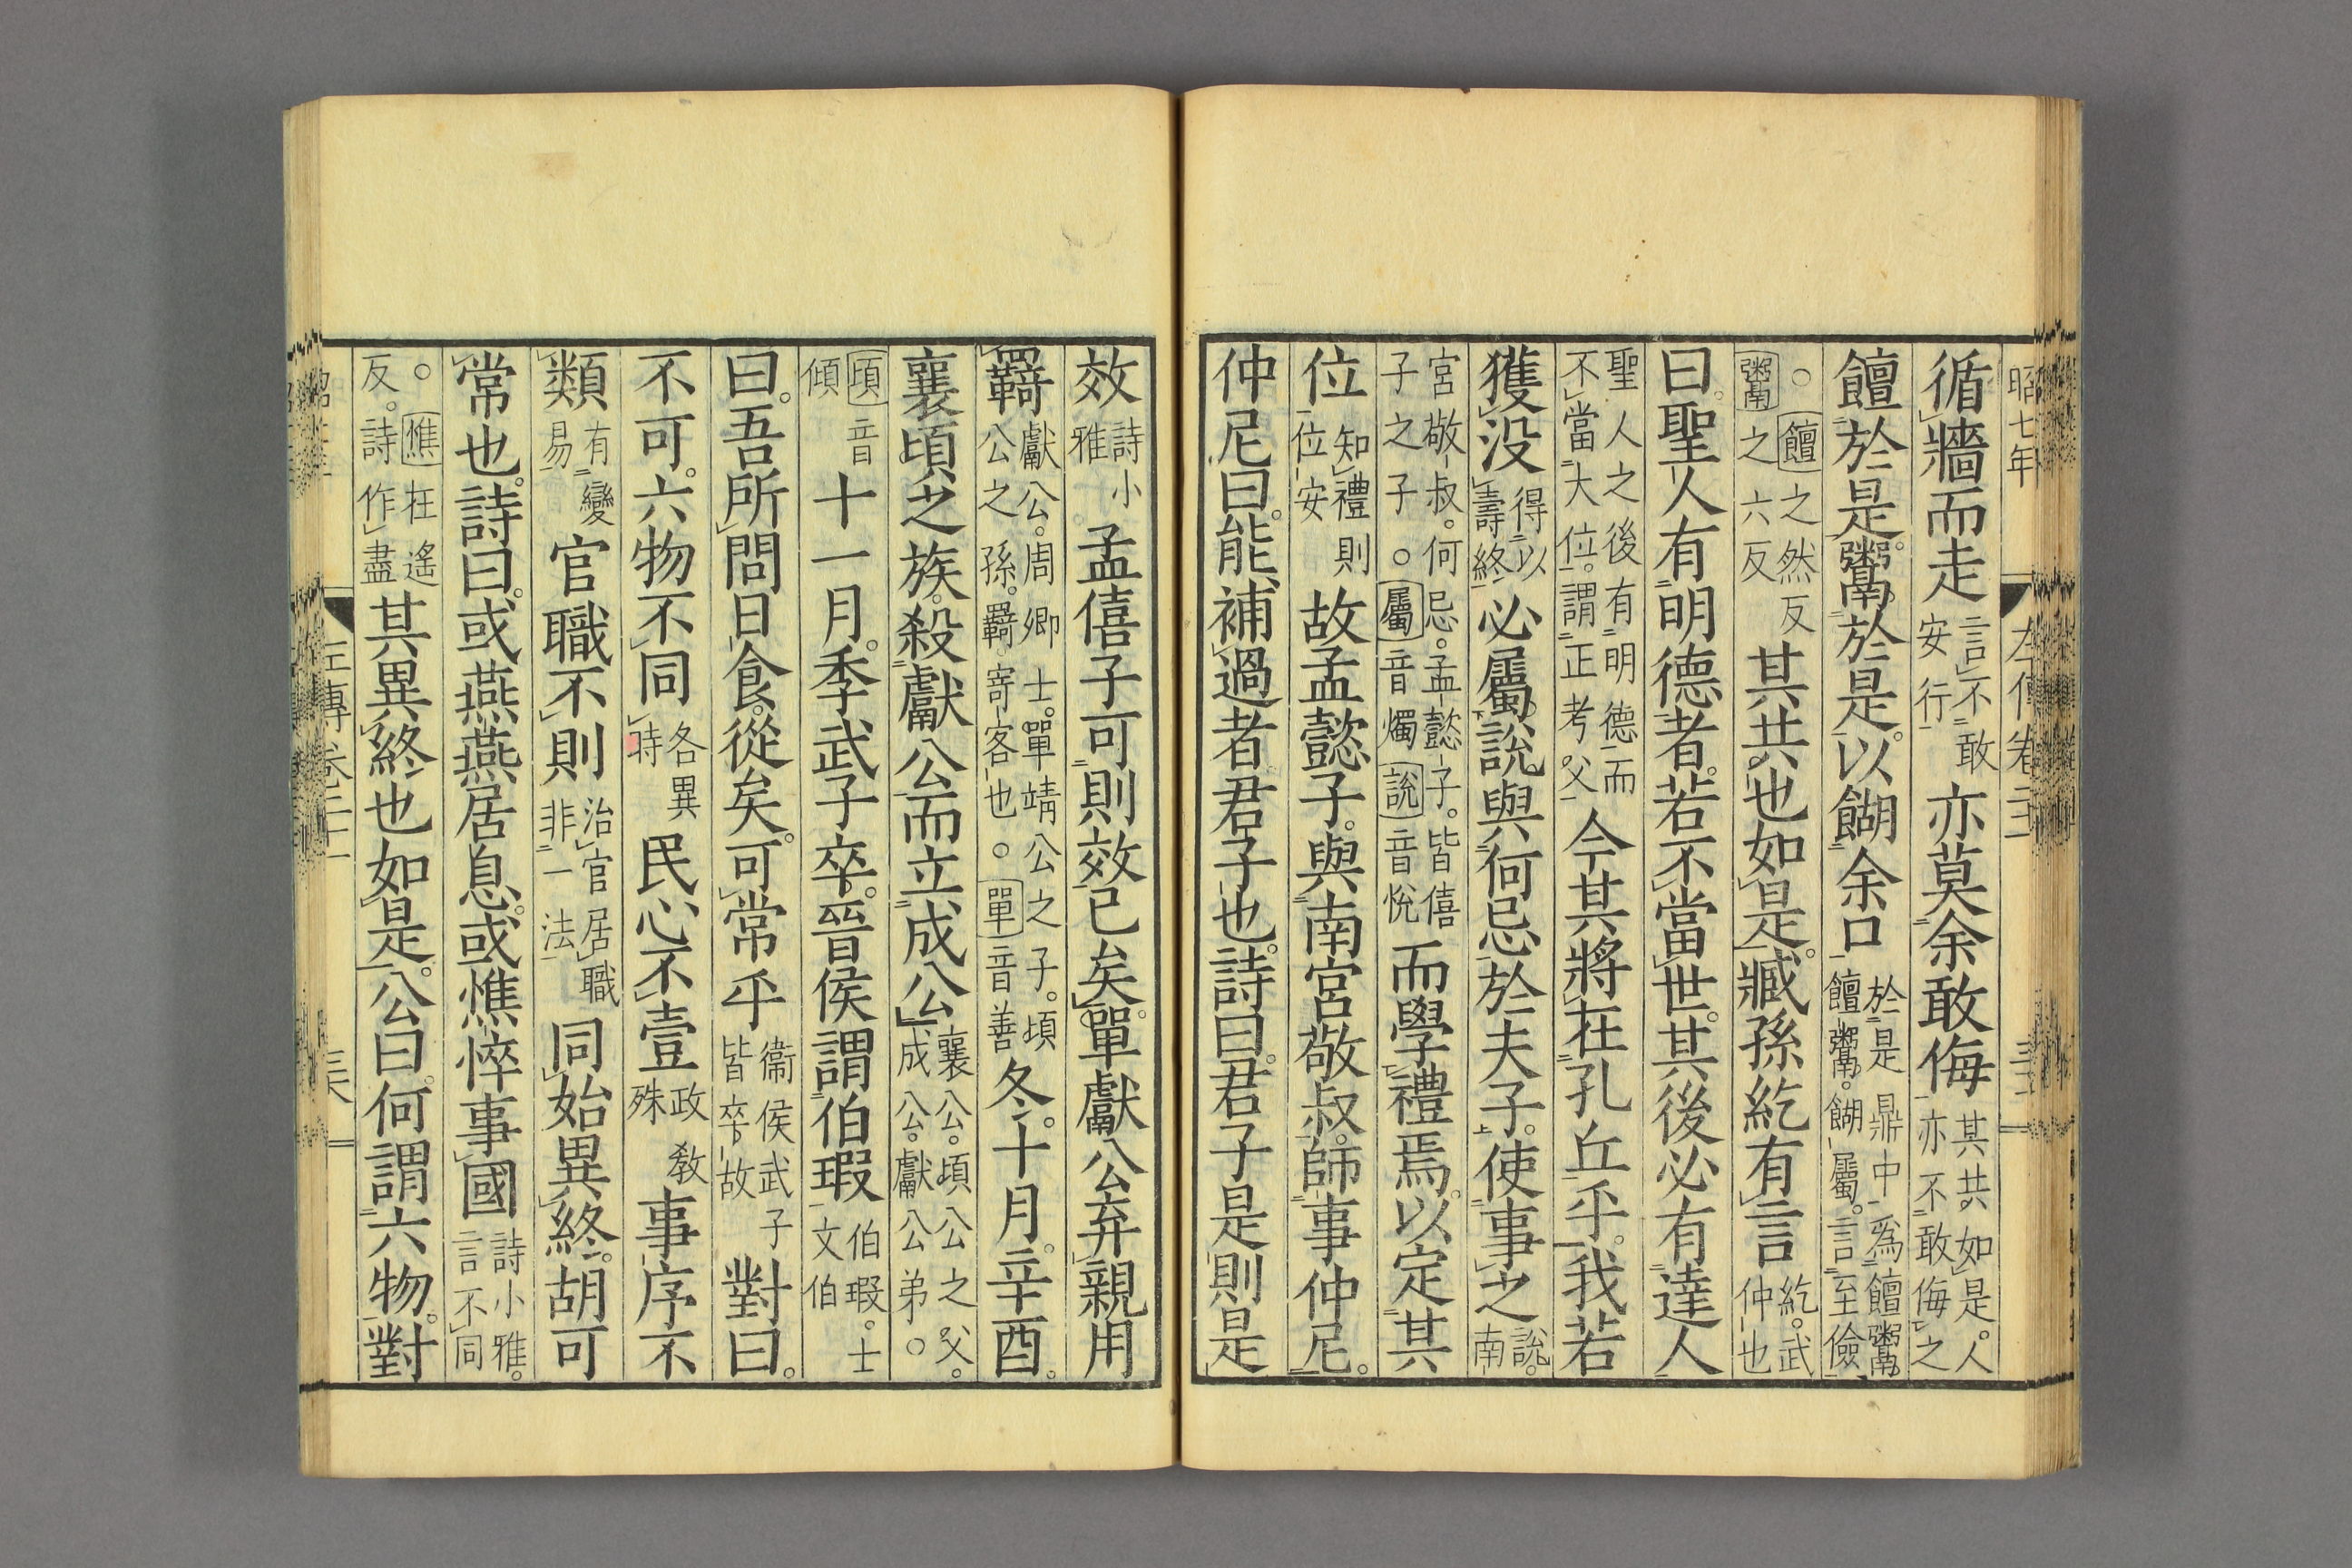 昭七年
循牆而走言不敢安行亦莫余敢侮其共如是人亦不敢侮之
饘於是鬻於是以餬余口於是鼎中爲饘鬻饘鬻餬屬言至儉
○饘之然反鬻之六反其共也如是臧孫紇有言紇武仲也
曰聖人有明德者若不當世其後必有達人
聖人之後有明德而不當大位謂正考父今其將在孔丘乎我若
獲沒得以壽終必屬說與何忌於夫子使事之說南
宮敬叔何忌孟懿子皆僖子之子○屬音燭說音悅而學禮焉以定其
位知禮則位安故孟懿子與南宮敬叔師事仲尼
仲尼曰能補過者君子也詩曰君子是則是
效詩小雅孟僖子可則效已矣單獻公弃親用
羇獻公周卿士單靖公之子頃公之孫羇寄客也○單音善冬十月辛酉
襄頃之族殺獻公而立成公襄公頃公之父成公獻公弟○
頃音傾十一月季武子卒晉侯謂伯瑕伯瑕士文伯
曰吾所問日食從矣可常乎衞侯武子皆卒故對曰
不可六物不同各異時民心不壹政教殊事序不
類有變易官職不則治官居職非一法同始異終胡可
常也詩曰或燕燕居息或憔悴事國詩小雅言不同
○憔在遙反詩作盡其異終也如是公曰何謂六物對